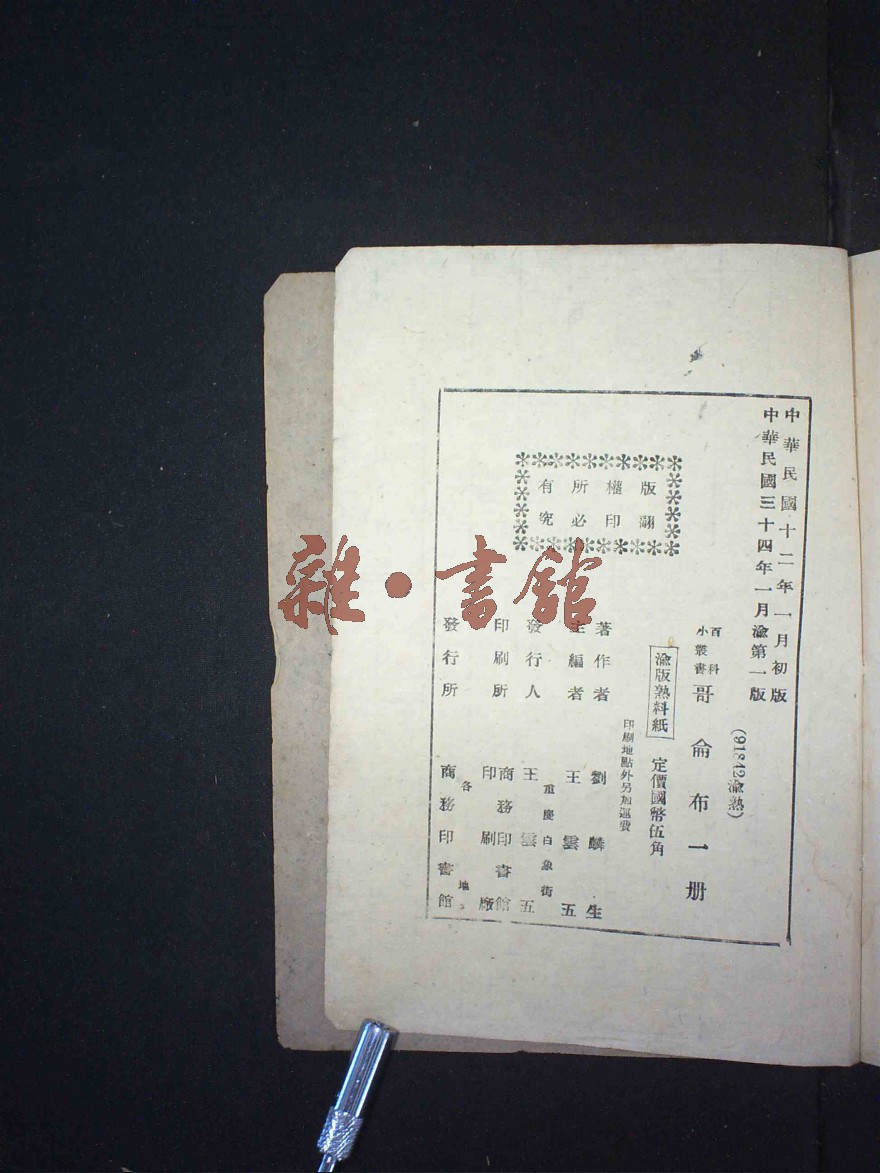 中華民國十二年一月初版
中華民國三十四年一月渝第一版
(91842渝熟)
百科小叢書 哥侖布一册
渝版熟料紙 定價國幣伍角
印刷地點外另加運費
版權所有
翻印必究
著作者 劉麟生
主編者 王雲五
重慶白象街
發行人 王雲五
印刷所 商務印書館印刷廠
各地
發行所 商務印書館
雜·書館